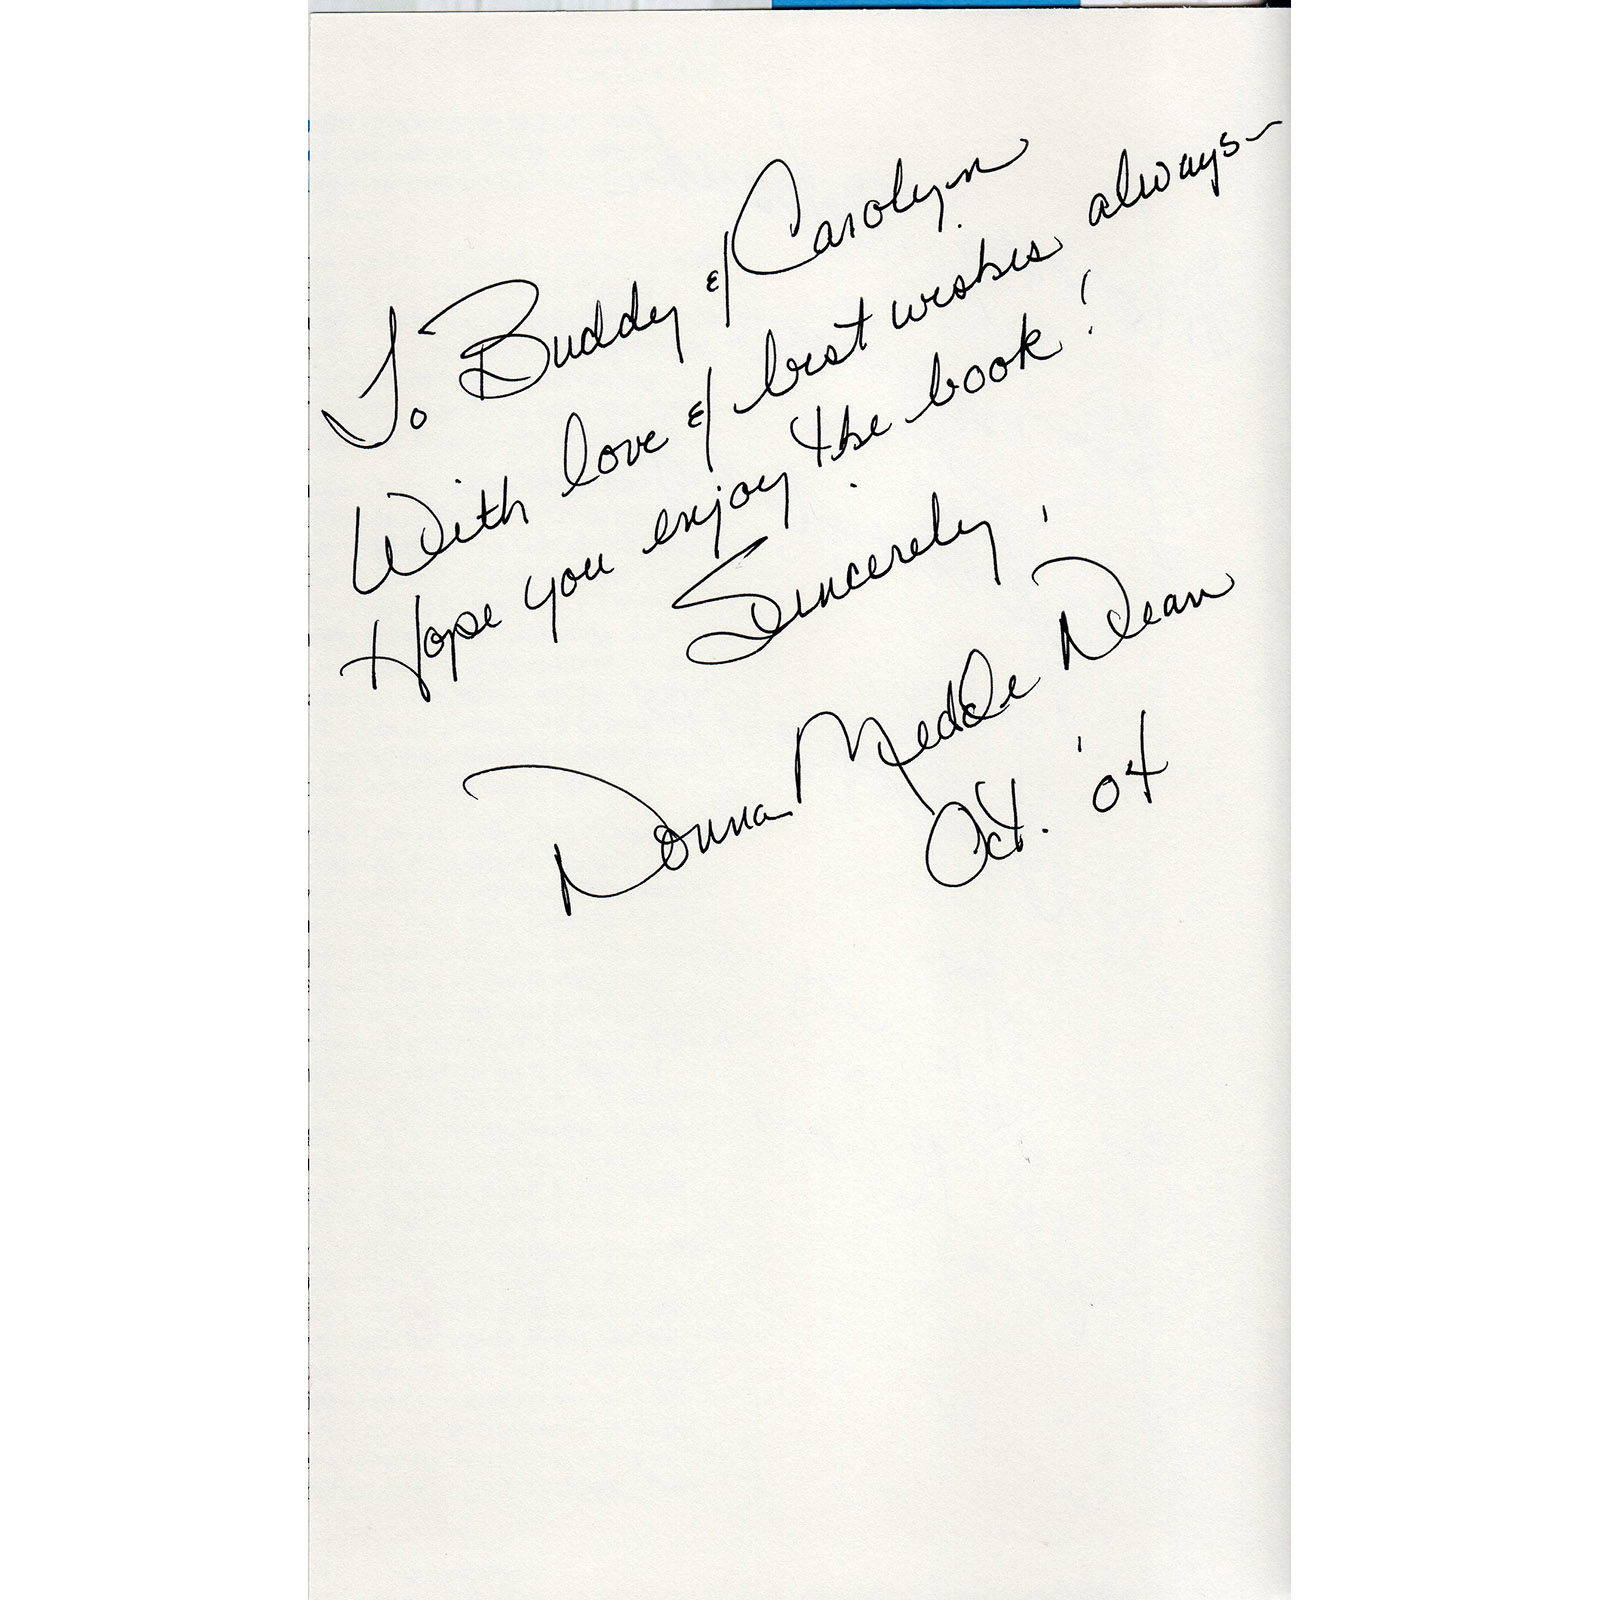 To Buddy & Carolyn
With love & best wishes always-
Hope you enjoy the book!
Sincerely,
Donna Meade Dean
Oct. '04